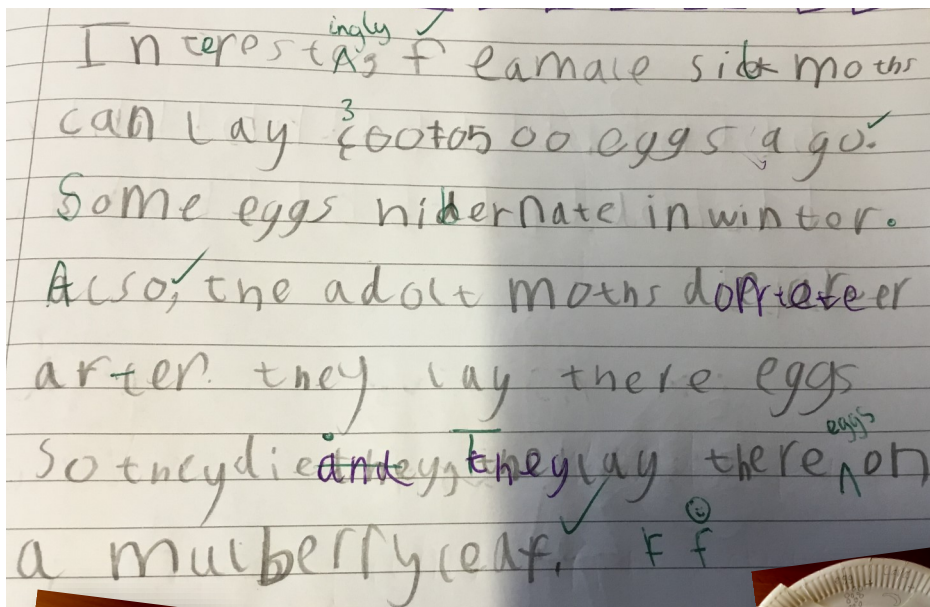 Interestingly f eamale silk moths
can lay 300to500 eggs a go.
Some eggs hibernate in winter.
Also, the adolt moths
arter they lay there eggs
so theydie they lay there eggs on
a mulberry leaf. F f